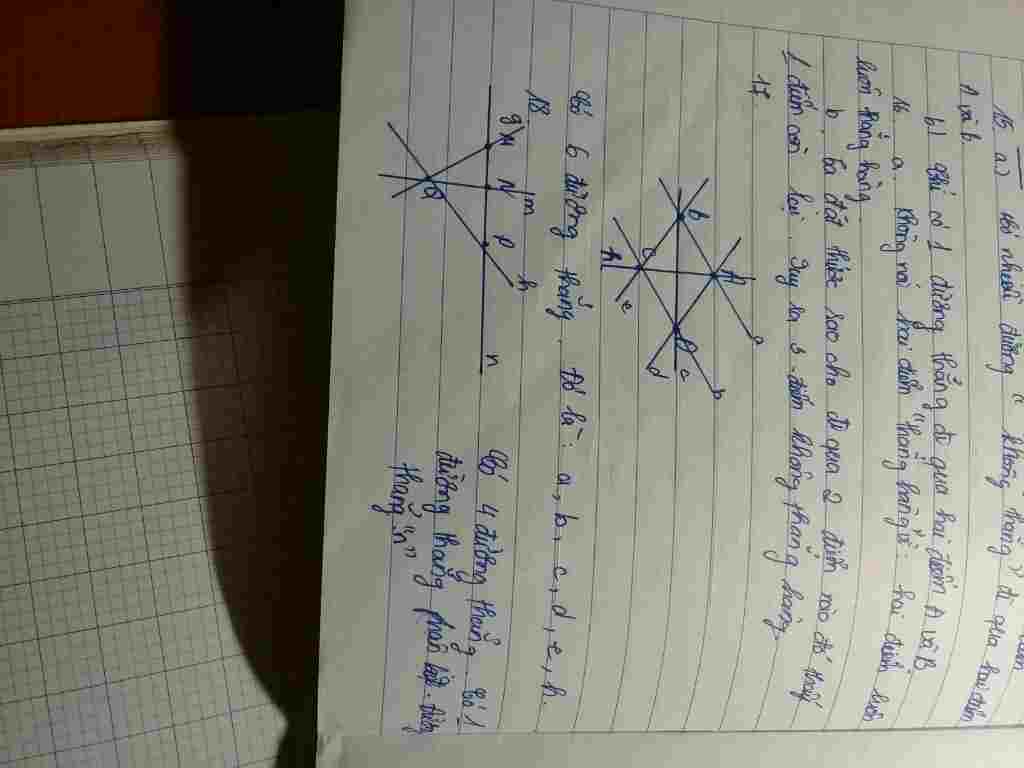 15 a) Có nhiều đường " không thẳng" đi qua hai điểm
A và B.
b) Chỉ có 1 đường thẳng đi qua hai điểm A và B
16. a. Không nói hai điểm "thẳng hàng" vì hai điểm luôn
luôn thẳng hàng.
b. Ta đặt thước sao cho đi qua 2 điểm nào đó thấy
1 điểm còn lại. Suy ra 3 điểm không thẳng hàng
17.
A
B
C
D
a
b
c
d
e
h
Có 6 đường thẳng. Đó là: a, b, c, d, e, h.
18.
g
M
N
m
P
h
n
Q
Có 4 đường thẳng. Có 1
đường thẳng phân biệt. đường
thẳng "n"